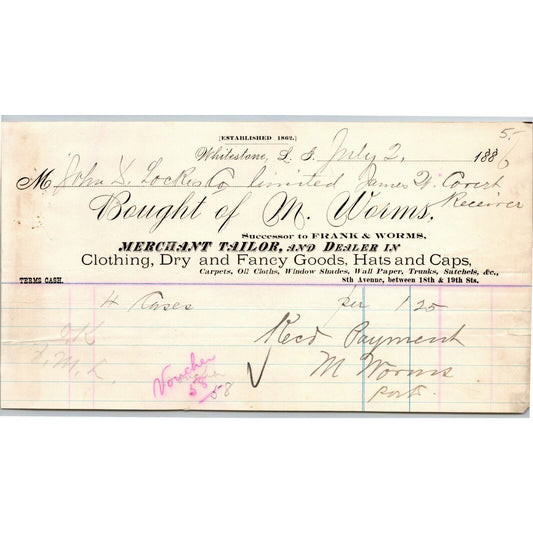 5-
(ESTABLISHED 1862.)
Whitestone, L. I. July 2, 1886
M John D. Locke & Co limited James W. Covert
Receiver
Bought of M. Worms,
Successor to FRANK & WORMS,
MERCHANT TAILOR, AND DEALER IN
Clothing, Dry and Fancy Goods, Hats and Caps,
Carpets, Oil Cloths, Window Shades, Wall Paper, Trunks, Satchels, &c.,
TERMS CASH.
8th Avenue, between 18th & 19th Sts.
4 Cases 1 25
OK
Recd Payment
M Worms
Voucher
58
58